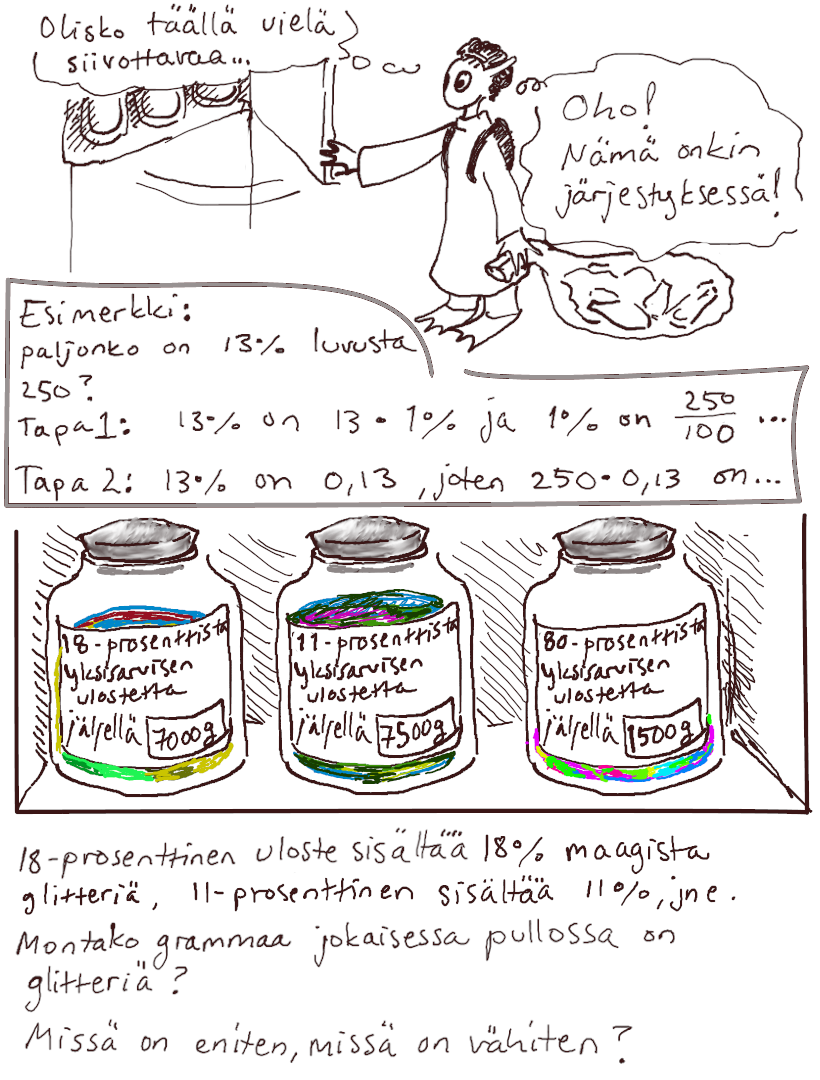 Olisko täällä vielä
siivottavaa...
Oho!
Nämä onkin
järjestyksessä!
Esimerkki:
paljonko on 13% luvusta
250?
Tapa 1: 13% on 13 • 1% ja 1% on 250/100 ...
Tapa 2: 13% on 0,13, joten 250•0,13 on...
18-prosenttista
yksisarvisen
ulostetta
jäljellä 7000g
11-prosenttista
yksisarvisen
ulostetta
jäljellä 7500g
80-prosenttista
yksisarvisen
ulostetta
jäljellä 1500g
18-prosenttinen uloste sisältää 18% maagista
glitteriä, 11-prosenttinen sisältää 11%, jne.
Montako grammaa jokaisessa pullossa on
glitteriä?
Missä on eniten, missä on vähiten?